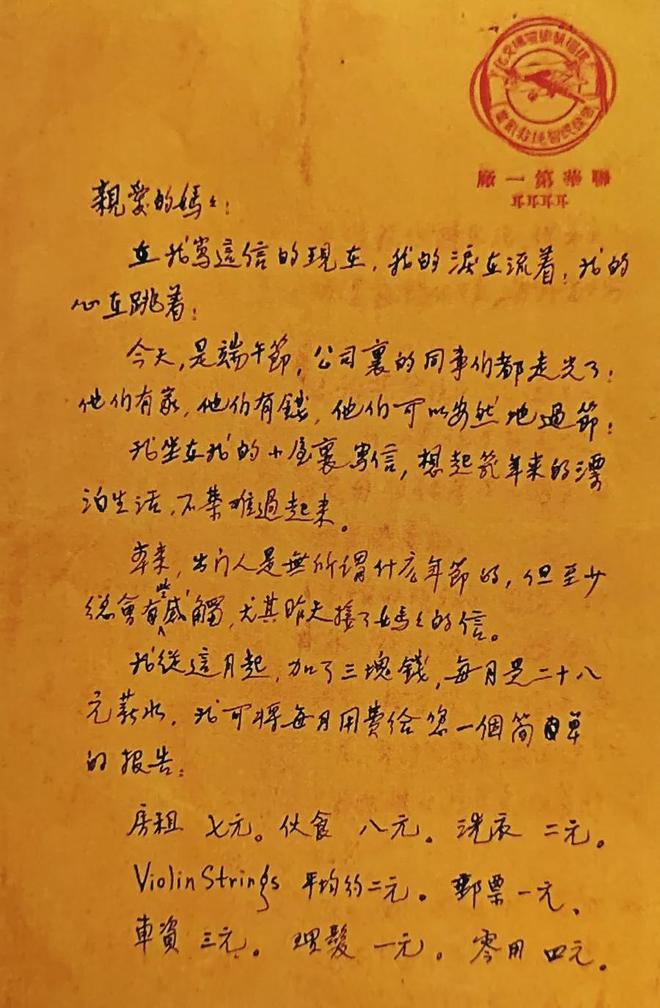 廠一第華聯
親愛的媽々：
在我寫這信的現在，我的淚在流着；我的
心在跳着；
今天，是端午節，公司裏的同事们都走光了；
他们有家，他们有錢，他们可以安然地過節；
我坐在我的小屋裏寫信，想起幾年来的漂
泊生活，不禁难過起来。
本来，出门人是無所谓什広年節的，但至少
總會有些感觸，尤其昨天接了媽々的信。
我從這月起，加了三塊錢，每月是二十八
元薪水，我可将每月用費给您一個简單
的报告：
房租 七元。伙食 八元。洗衣 二元。
Violin Strings 平均约二元。郵票一元、
車資 三元。理髮 一元。零用 四元。